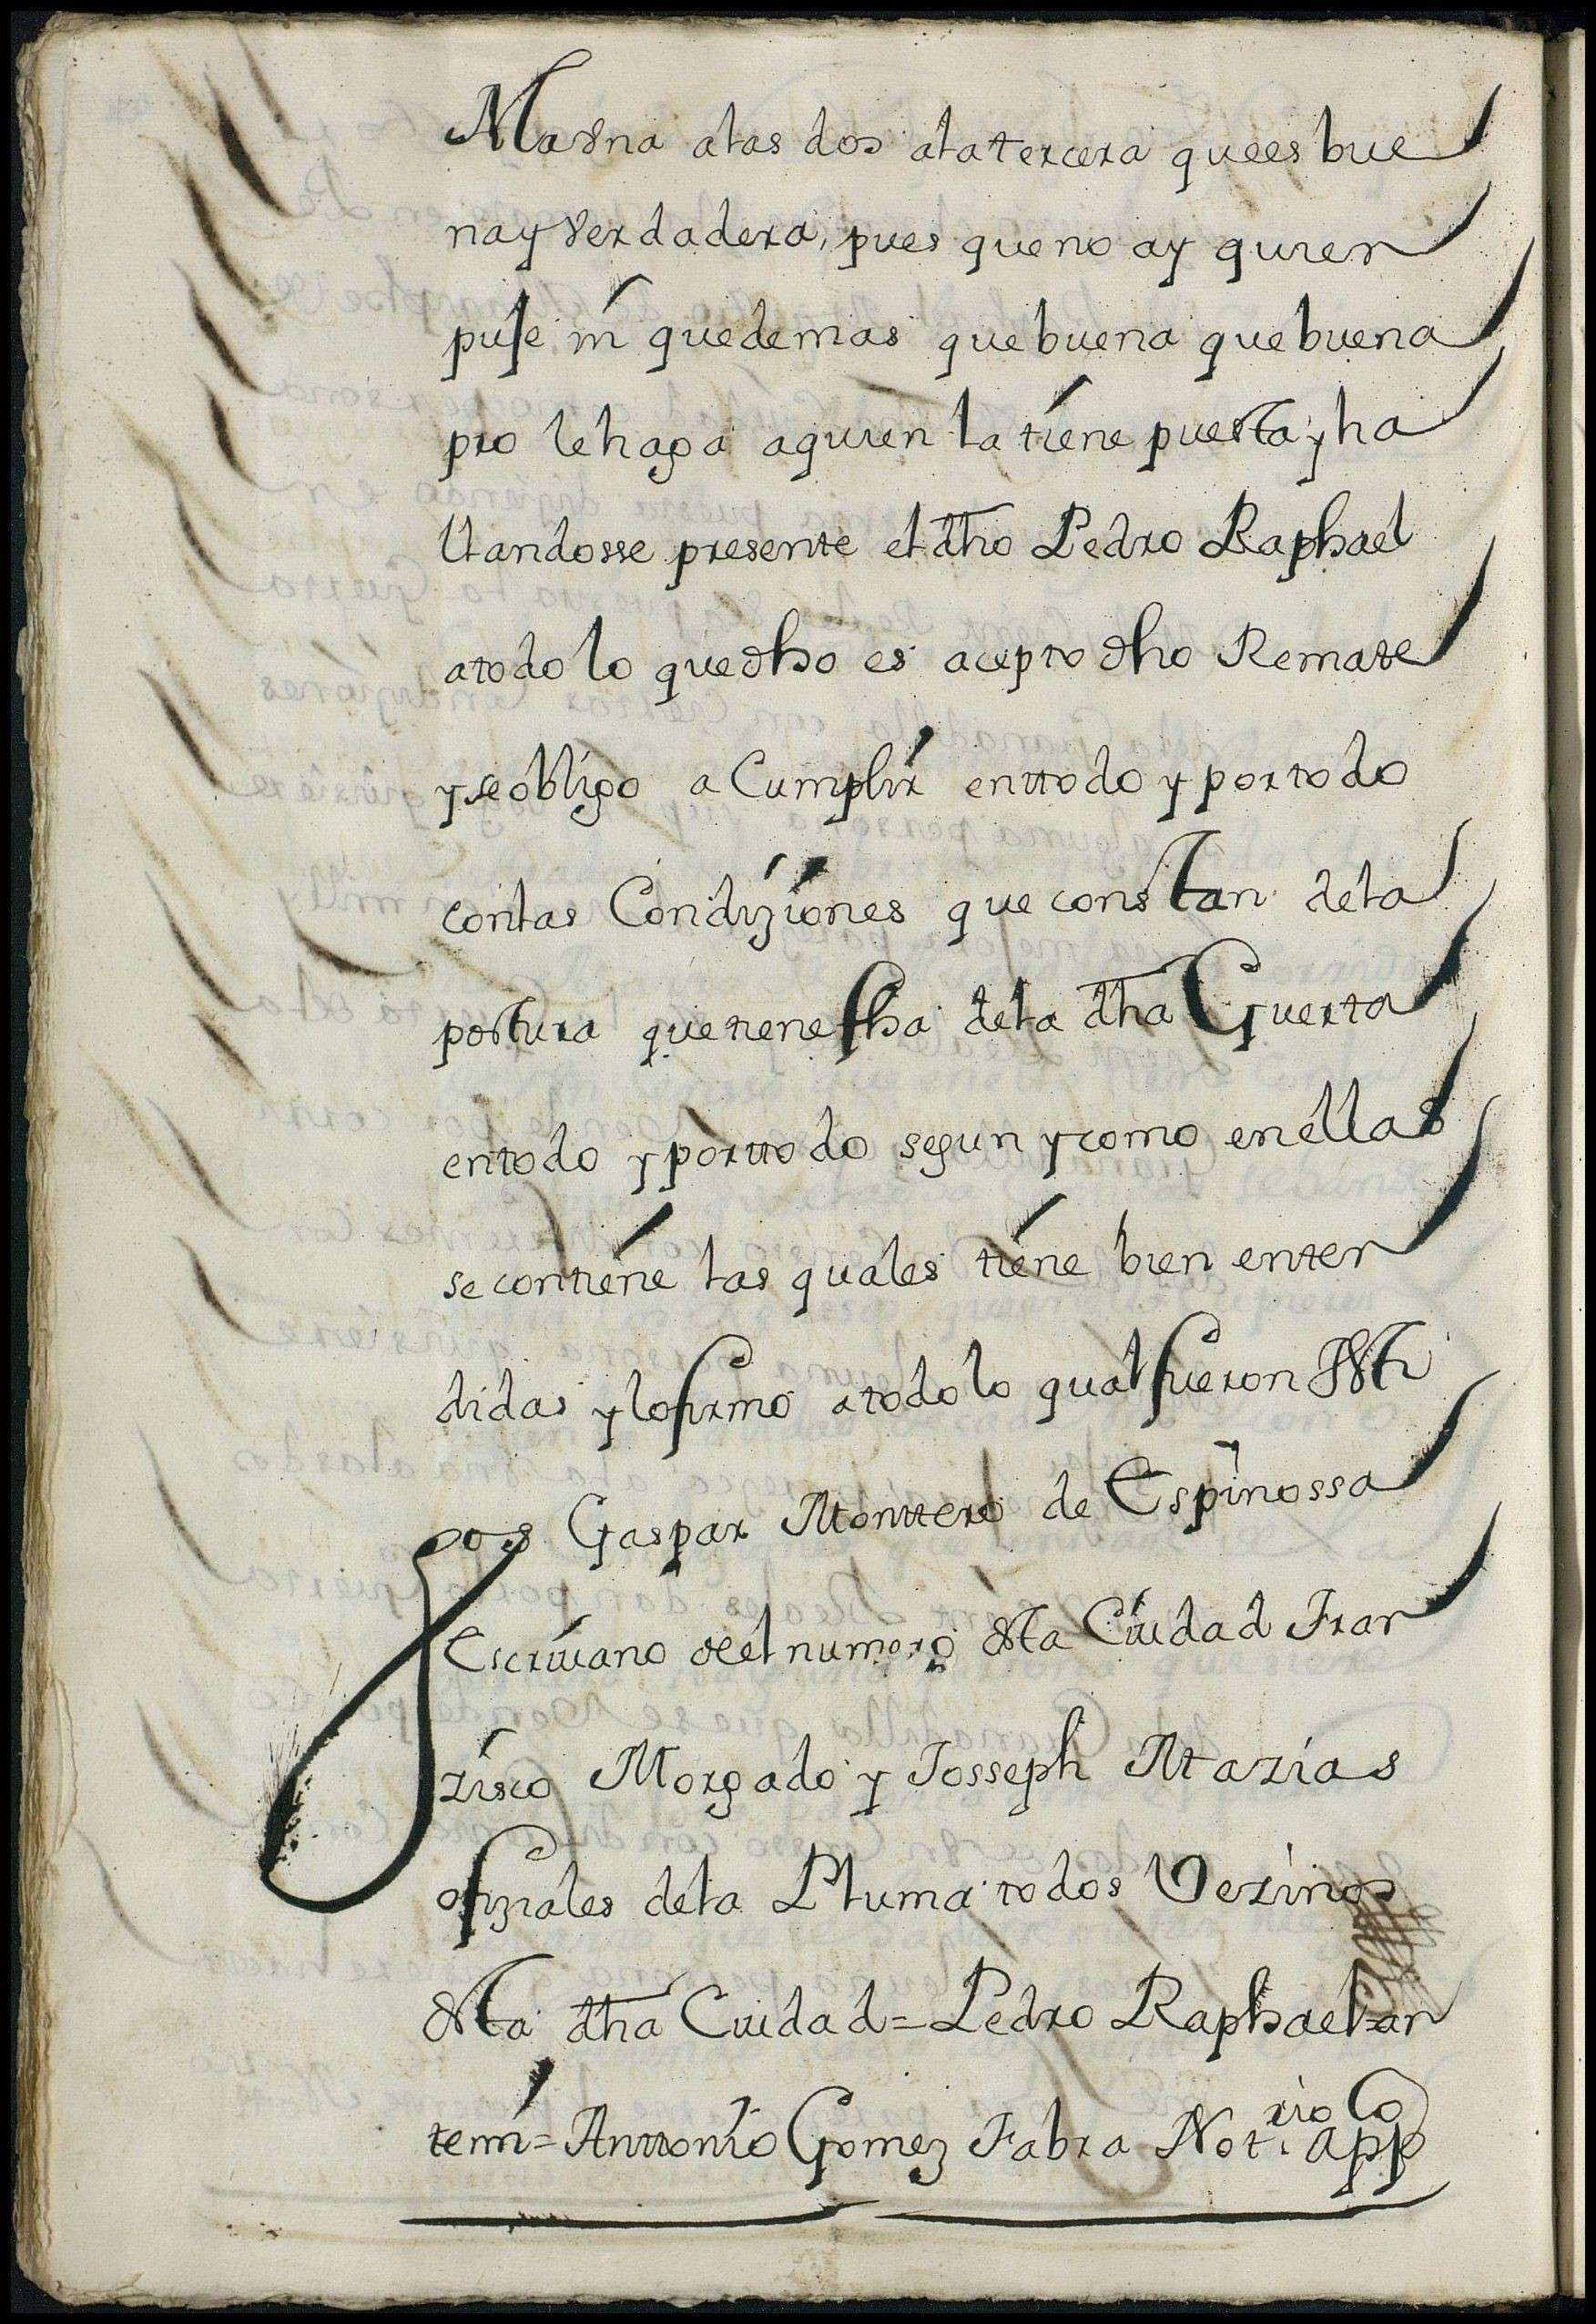 Mas vna a las dos a la tercera que es bue
na y verdadera, pues que no ay quien
puje ni que de mas que buena que buena
pro le haga a quien la tiene puesta y ha
llandosse presente el dho Pedro Raphael
a todo lo que dho es acepto dho Remate
y se obligo a Cumplir en ttodo y por todo
con las Condiziones que constan de la
postura que tiene fha de la dha Guerta
en todo y por ttodo segun y como en ellas
se contiene las quales tiene bien enten
didas y lo firmo a todo lo qual fueron testi
gos Gaspar Monttero de Espinossa
Escriuano del numero desta Ciudad Fran
zisco Morgado y Josseph Mazias
ofiziales de la Pluma todos Vezinos
desta dha Ciudad = Pedro Raphael = an
te mi = Anttonio Gomez Fabra Not.rio App.co